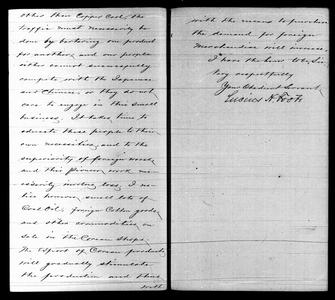 other than Copper Cash, the
traffic must necessarily be
done by bartering one product
for another, and our people
either cannot successfully
compete with the Japanese
and Chinese, or they do not
care to engage in this small
business. It takes time to
educate these people to their
own necessities, and to the
superiority of foreign wares,
and this Pioneer work ne-
cessarily involves loss. I no-
tice however, small lots of
Coal Oil, foreign Cotton goods,
and other commodities on
sale in the Corean Shops.
The Export of Corean products
will gradually stimulate
the production and thus
with
with the means to purchase
the demand for foreign
Merchandise will increase.
I have the honor to be, Sir
Very respectfully
Your Obedient Servant
Lucius H. Foote